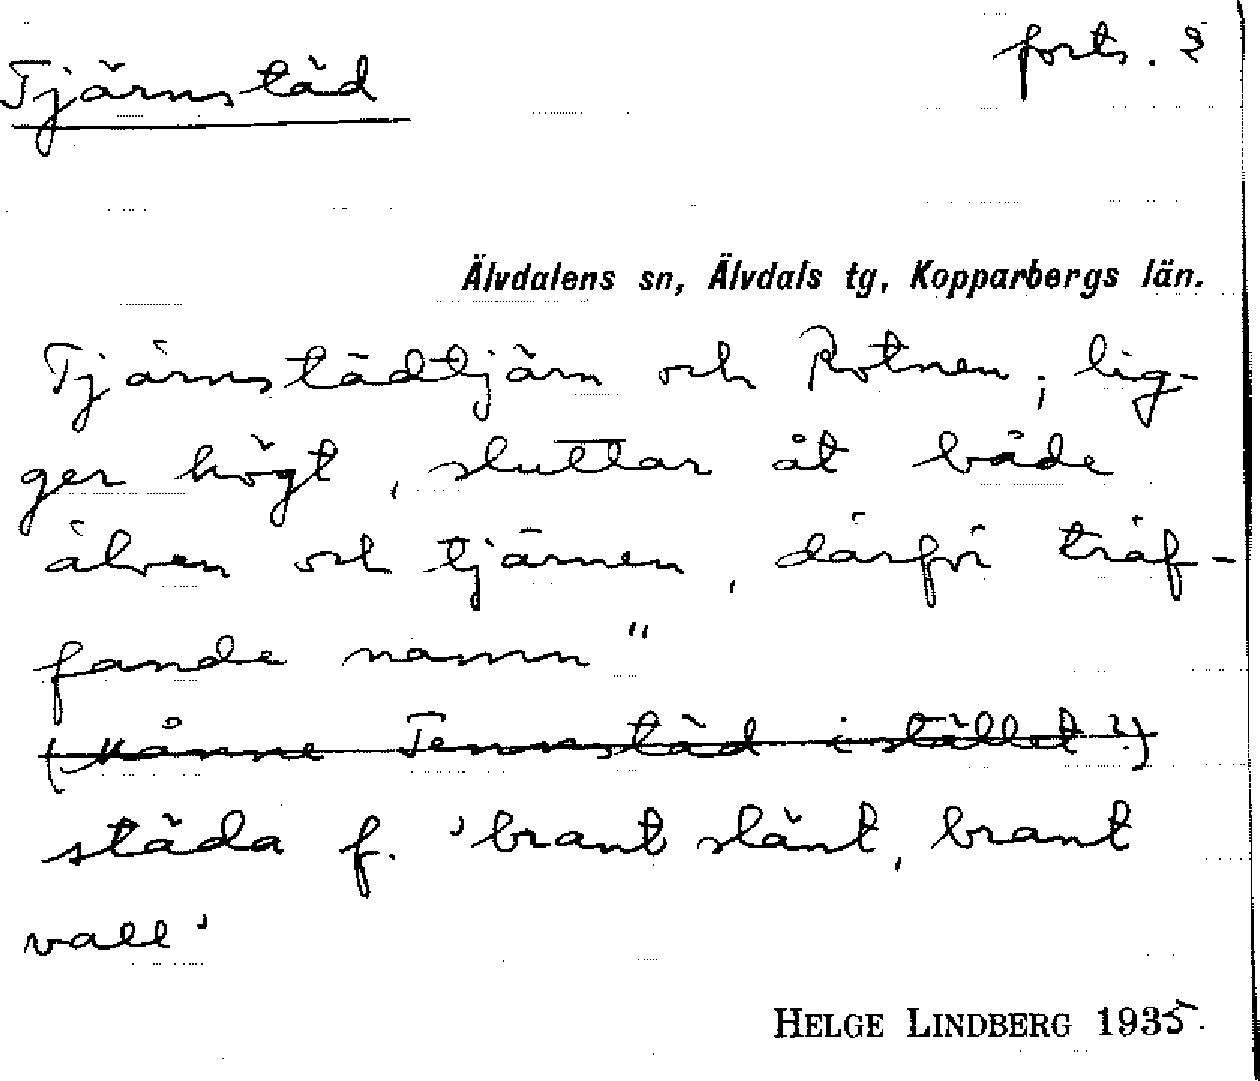 Tjärnstäd
forts. 2
Älvdalens sn, Älvdals tg, Kopparbergs län.
Tjärnstädtjärn och Rotnen; lig-
ger högt, sluttar åt både
älven och tjärnen, därför träf-
fande namn"
(Månne Tennstäd i stället?)
städa f. 'brant slänt, brant
vall'
HELGE LINDBERG 1935.